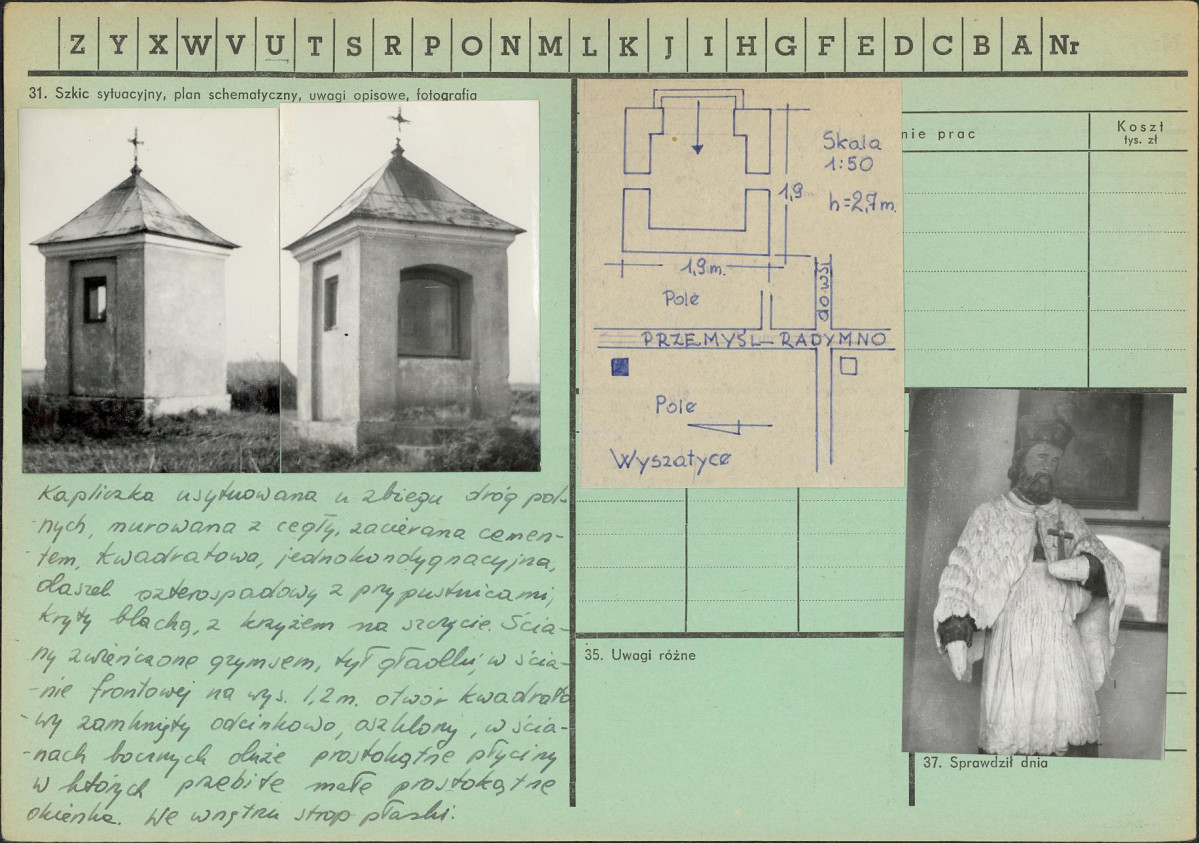 Z Y X W V U T S R P O N M L K J I H G F E D C B A Nr
31. Szkic sytuacyjny, plan schematyczny, uwagi opisowe, fotografia
Kapliczka usytuowana u zbiegu dróg pol-
-nych, murowana z cegły, zacierana cemen-
-tem, kwadratowa, jednokondygnacyjna,
daszek czterospadowy z przypustnicami,
kryty blachą, z krzyżem na szczycie. Ścia-
ny zwieńczone gzymsem, tył gładki, w ścia-
-nie frontowej na wys. 1,2 m. otwór kwadrato
-wy zamknięty odcinkowo, oszklony, w ścia-
-nach bocznych duże prostokątne płyciny
w których przebite małe prostokątne
okienka. We wnętrzu strop płaski.
Skala
1:50
1,9
h=2,7m.
1,9 m.
Pole
do wsi
PRZEMYŚL - RADYMNO
Pole
Wyszatyce
nie prac
Koszt
tys. zł
35. Uwagi różne
37. Sprawdził dnia